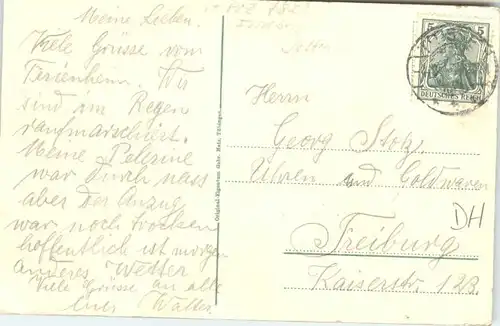 Meine Lieben.
Viele Grüsse vom
Ferienheim. Wir
sind im Regen
raufmarschiert.
Meine Pelerine
war durch nass
aber der Anzug
war noch trocken
hoffentlich ist morgen
anderes Wetter
Viele Grüsse an alle
Euer Walter
Original-Eigentum Gebr. Metz, Tübingen.
5 5
DEUTSCHES REICH
Herrn
Georg Stolz,
Uhren und Goldwaren
DH
Freiburg
Kaiserstr. 123.